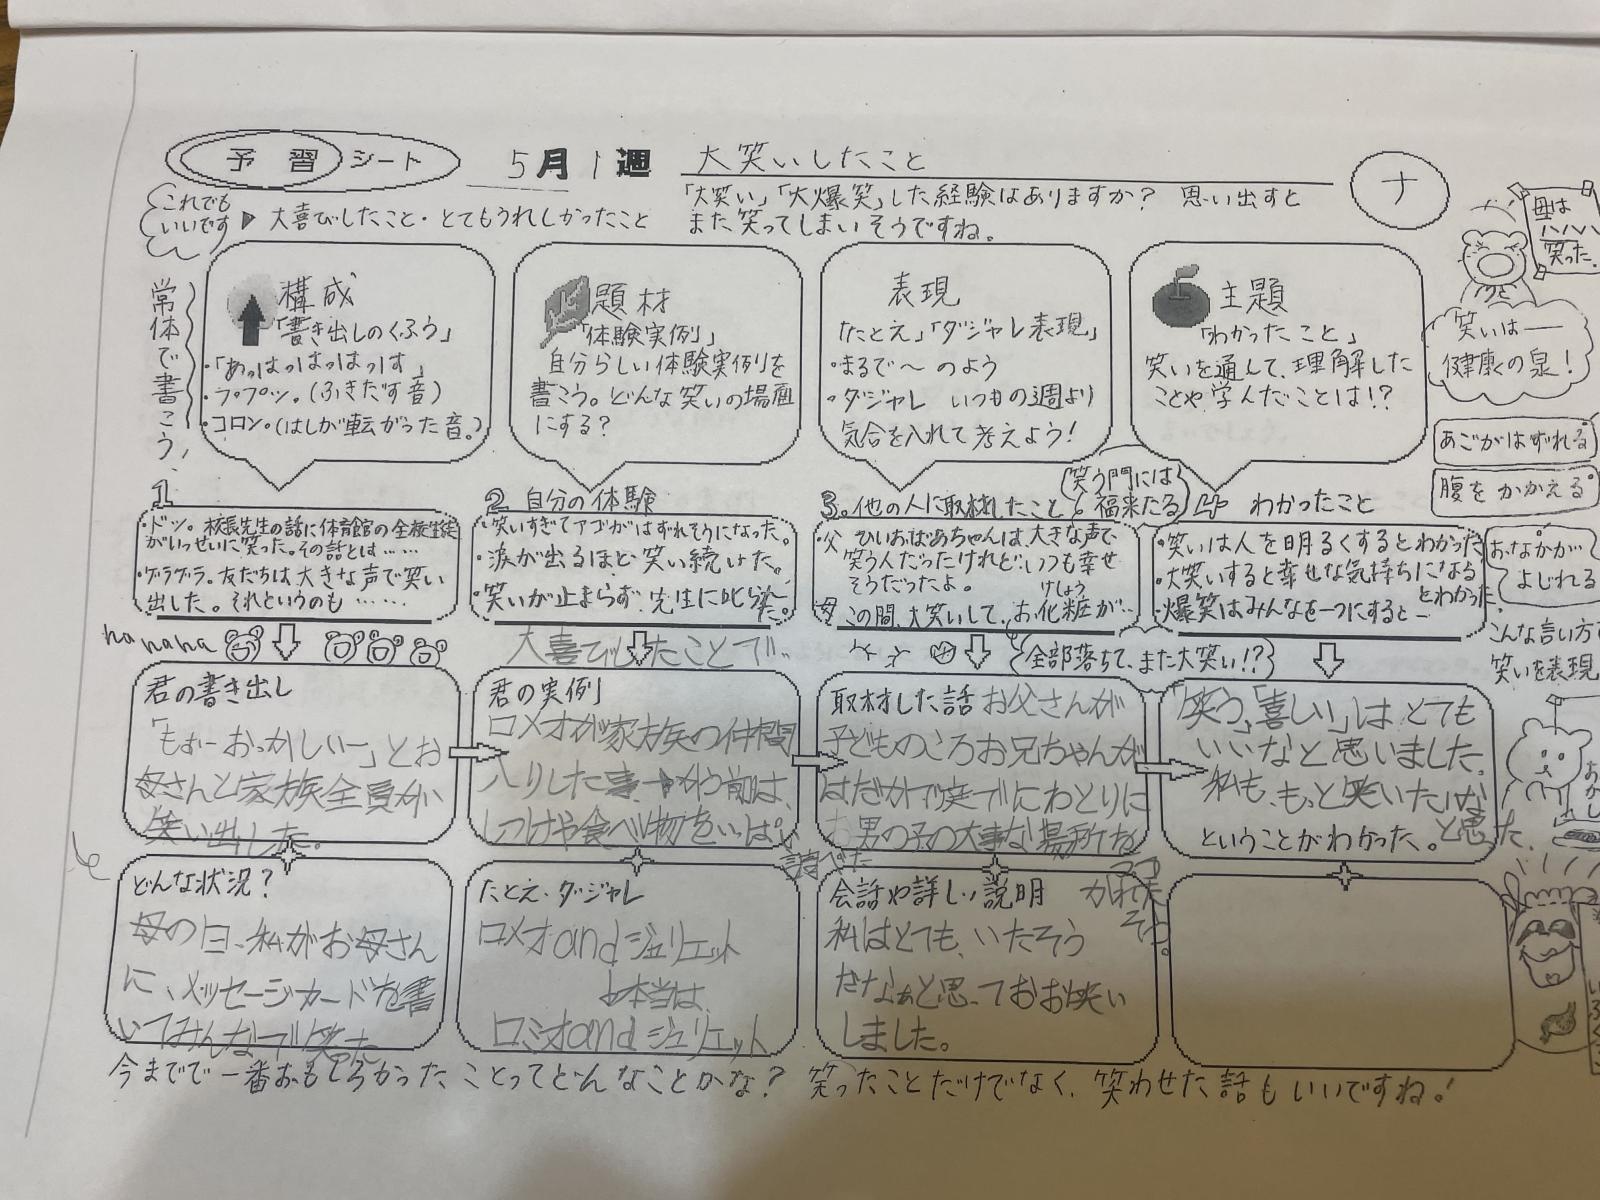 予習シート 5月1週 大笑いしたこと ナ
これでも
いいです
▶ 大喜びしたこと・とてもうれしかったこと
「大笑い」「大爆笑」した経験はありますか? 思い出すと
また笑ってしまいそうですね。
常体で書こう。
構成
「書き出しのくふう」
・「あっはっはっはっはっす」
・ププッ。(ふきだす音)
・コロン。(はしが転がった音。)
題材
「体験実例」
自分らしい体験実例を
書こう。どんな笑いの場面
にする?
表現
たとえ」「ダジャレ表現」
・まるで〜のよう
・ダジャレ いつもの週より
気合を入れて考えよう!
主題
「わかったこと」
笑いを通して、理解した
ことや学んだことは!?
母は
ハハハ
笑った.
笑いは―
健康の泉!
あごがはずれる
腹をかかえる
おなかが
よじれる
こんな言い方で
笑いを表現
1
・ドッ。校長先生の話に体育館の全校生徒
がいっせいに笑った。その話とは……
・ゲラゲラ。友だちは大きな声で笑い
出した。それというのも……
2 自分の体験
・笑いすぎてアゴがはずれそうになった。
・涙が出るほど笑い続けた。
・笑いが止まらず、先生に叱られた。
3. 他の人に取材したこと
笑う門には
福来たる
・父 ひいおばあちゃんは、大きな声で
笑う人だったけれど…いつも幸せ
そうだったよ。
母 この間、大笑いして、お化粧が…
けしょう
全部落ちて、また大笑い!?
4 わかったこと
・笑いは人を明るくするとわかった
・大笑いすると幸せな気持ちになる
とわかった.
・爆笑はみんなを一つにすると―
ha ha ha
大喜びしたことで..
君の書き出し
「もぉーおっかしいー」とお
母さんと家族全員が
笑い出した。
君の実例
ロメオが家族の仲間
入りした事 かう前は、
しつけや食べ物をいっぱい
調べた
取材した話 お父さんが
子どものころお兄ちゃんが
はだかで庭でにわとりに
お男の子の大事な場所を
かれた
そう。
「笑う」「喜しい」はとても
いいなと思いました.
私も、もっと笑いたいな
と思った.
ということがわかった。
どんな状況?
母の日、私がお母さん
に、メッセージカードを書
いてみんなで笑った
たとえ・ダジャレ
ロメオandジュリエット
↓本当は
ロミオandジュリエット
会話や詳しい説明
私はとても、いたそう
だなぁと思っておお笑い
しました。
今までで一番おもしろかったことってどんなことかな? 笑ったことだけでなく、笑わせた話もいいですね!